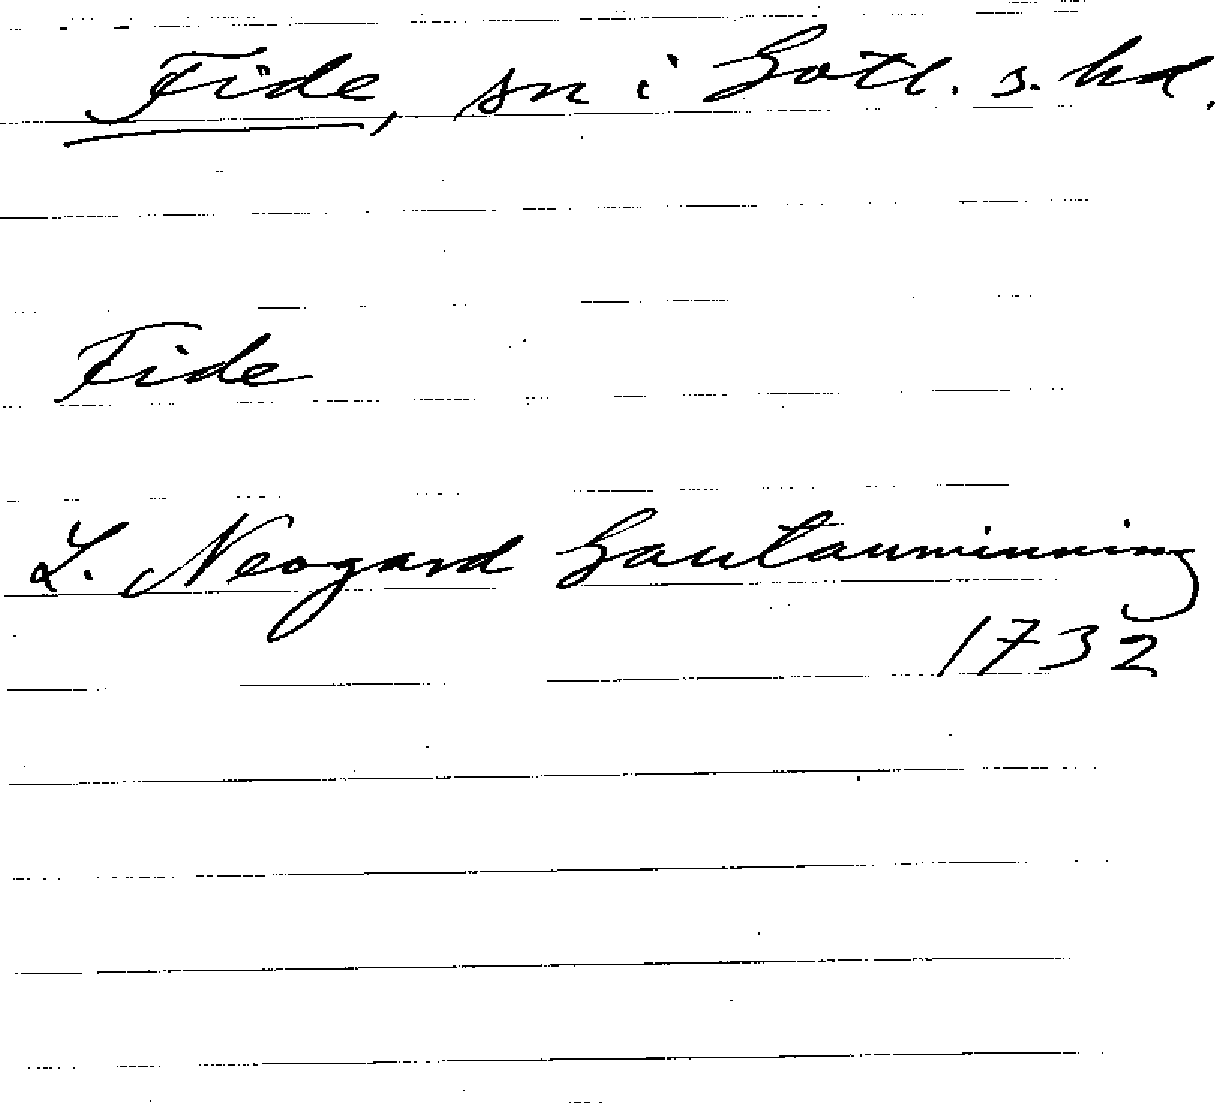 Fide, sn i Gotl. s. hd.
Fide
L. Neogard Gautauminning
1732